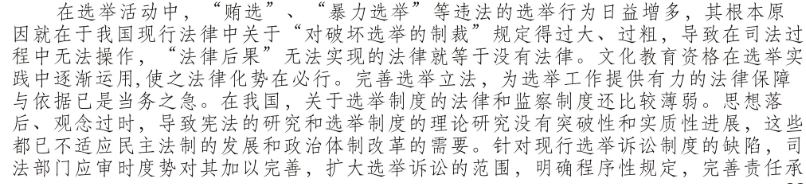 在选举活动中，“贿选”、“暴力选举”等违法的选举行为日益增多，其根本原
因就在于我国现行法律中关于“对破坏选举的制裁”规定得过大、过粗，导致在司法过
程中无法操作，“法律后果”无法实现的法律就等于没有法律。文化教育资格在选举实
践中逐渐运用,使之法律化势在必行。完善选举立法，为选举工作提供有力的法律保障
与依据已是当务之急。在我国，关于选举制度的法律和监察制度还比较薄弱。思想落
后、观念过时，导致宪法的研究和选举制度的理论研究没有突破性和实质性进展，这些
都已不适应民主法制的发展和政治体制改革的需要。针对现行选举诉讼制度的缺陷，司
法部门应审时度势对其加以完善，扩大选举诉讼的范围，明确程序性规定，完善责任承